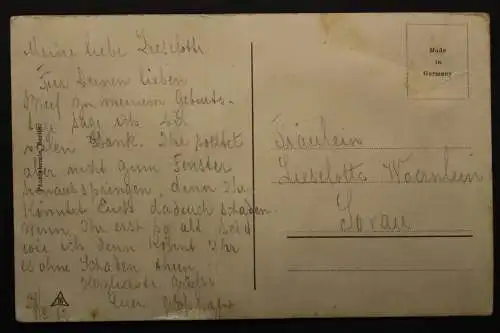 Meine liebe Lieselotte
Für Deinen lieben
Brief zu meinem Geburts-
tage sage ich Dir
vielen Dank. Ihr solltet
aber nicht zum Fenster
hinausspringen, denn Ihr
könntet Euch dadurch schaden
wenn Ihr erst so alt seid
wie ich dann könnt Ihr
es ohne Schaden thun!!
Herzlichste Grüße
Euer
Made
in
Germany
Fräulein
Lieselotte
Sorau